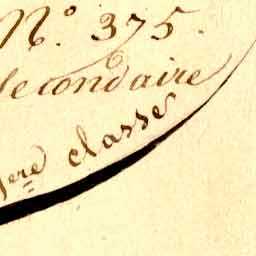 N.° 375.
secondaire
1ere classe